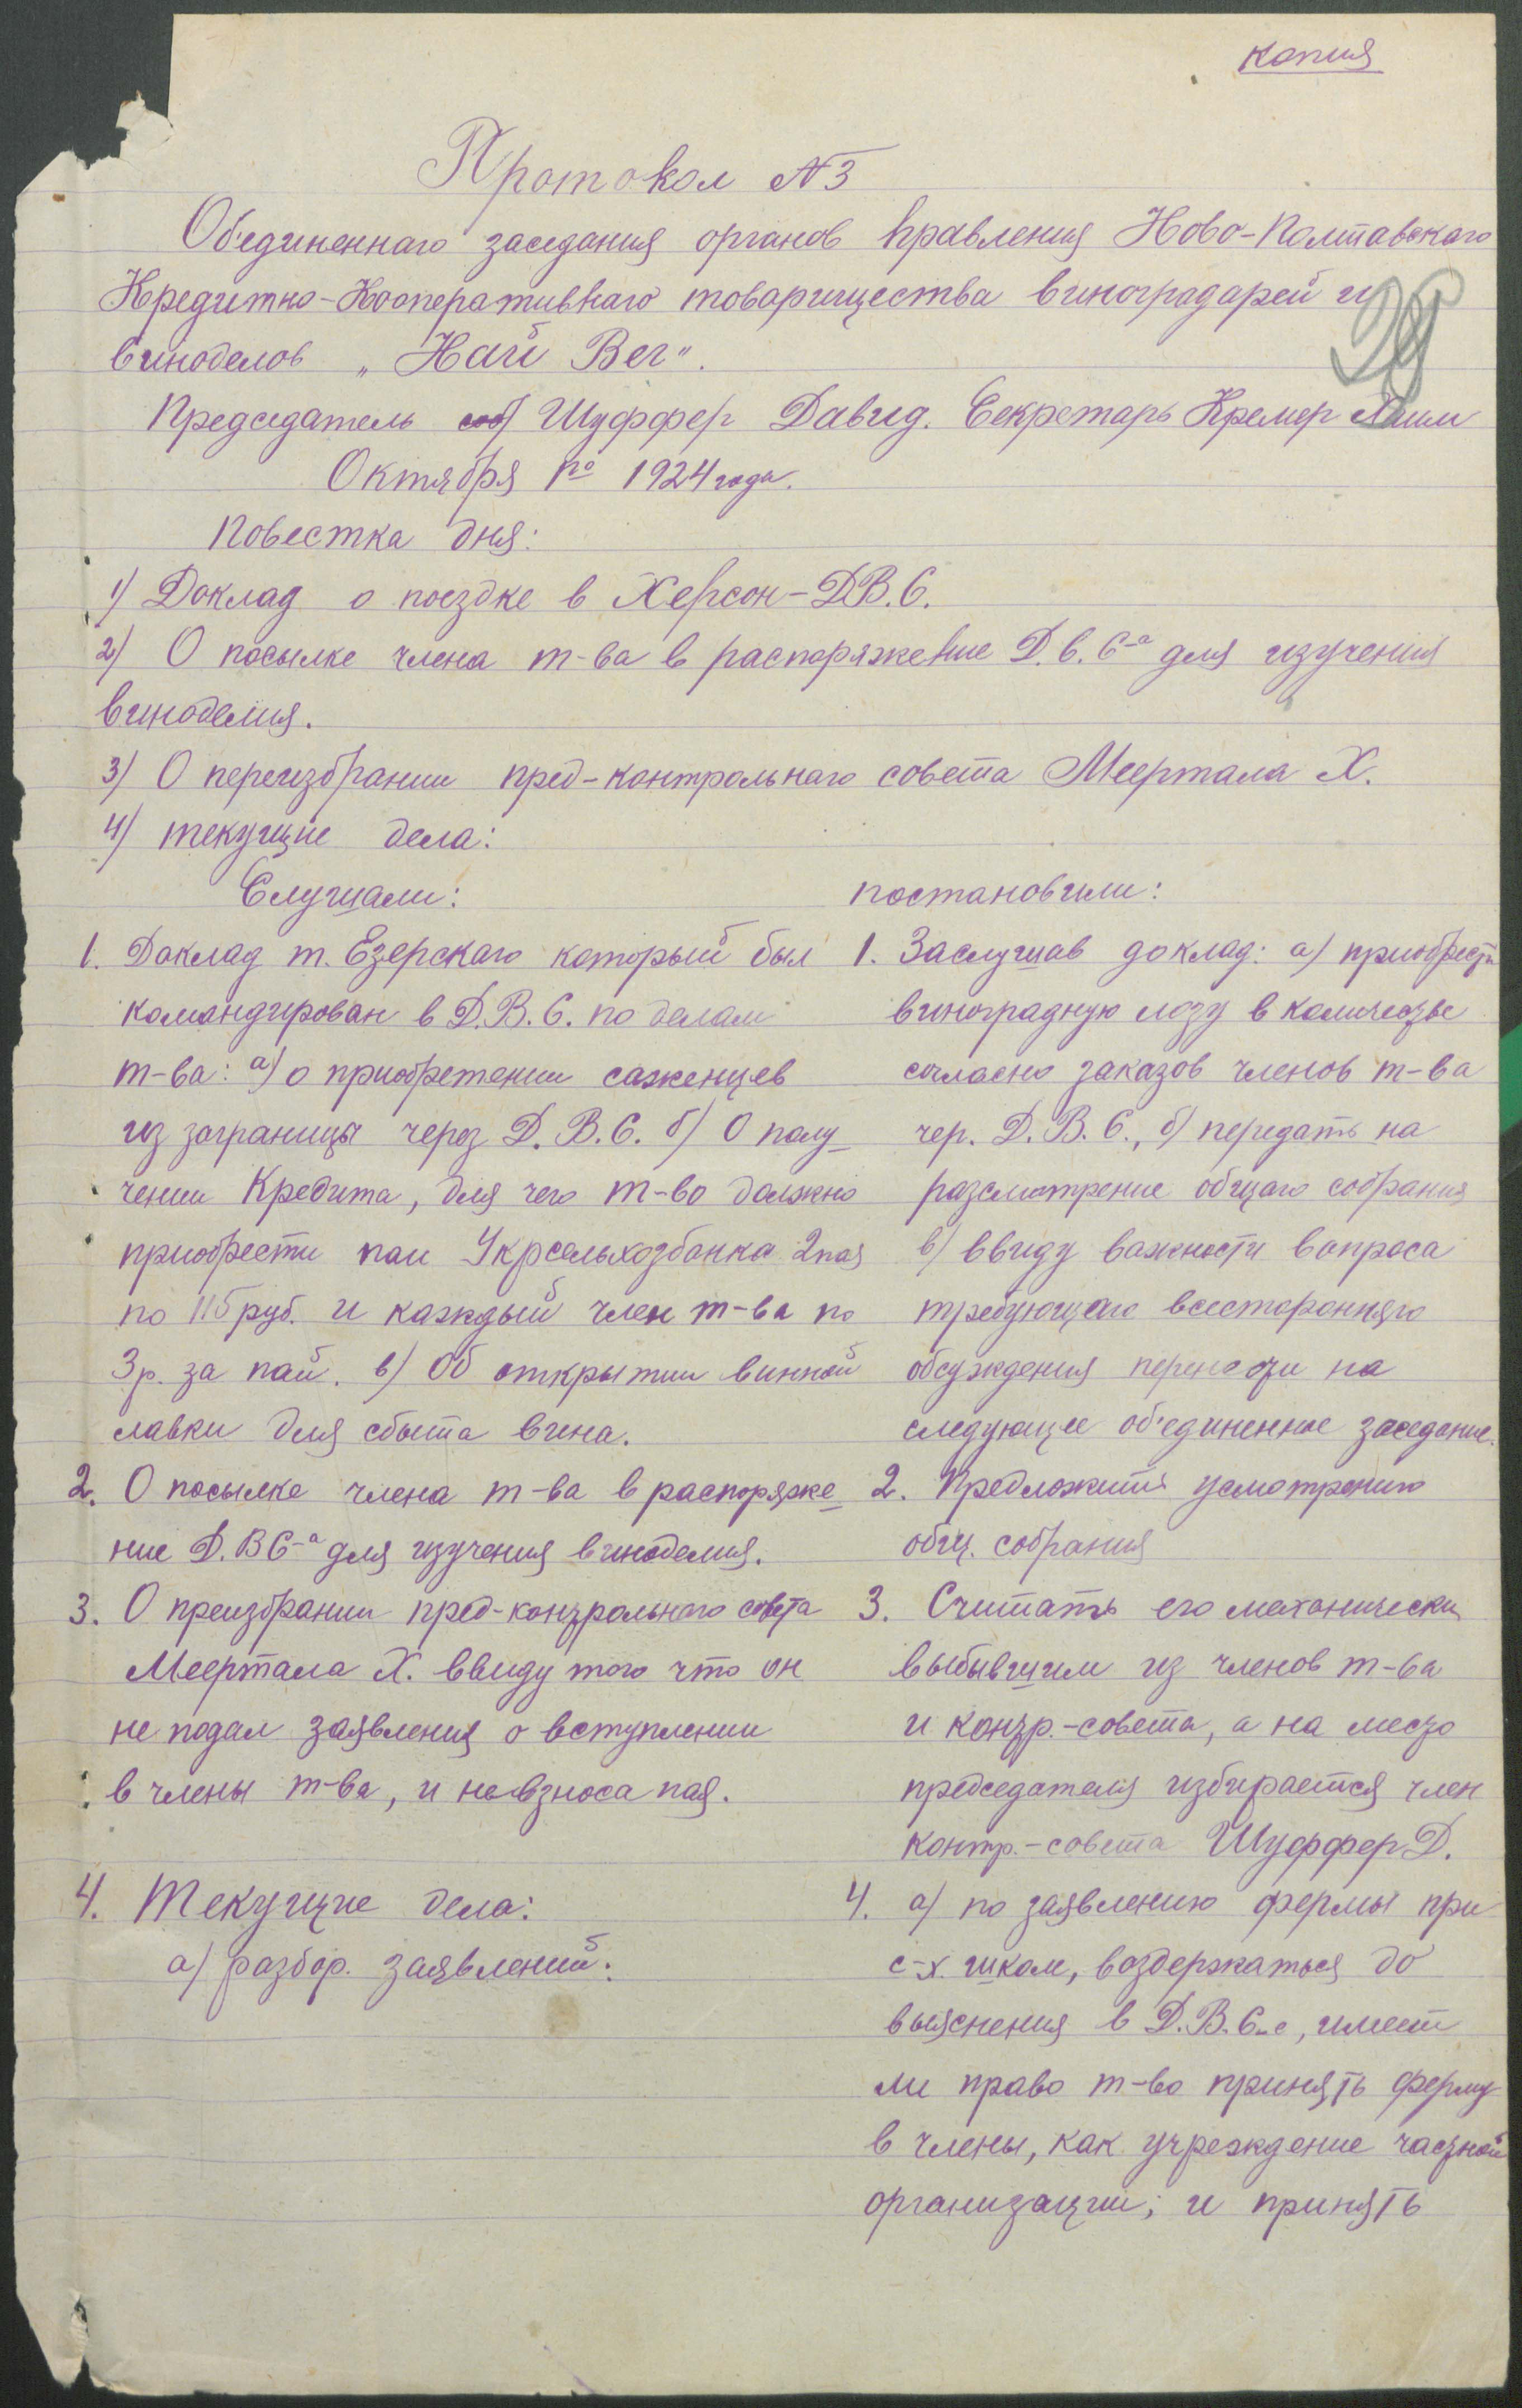 копия
Протокол №3
Об'единеннаго заседания органов правления Ново-Полтавскаго
Кредитно-Кооперативнаго товарищества виноградарей и
виноделов „Най Вег".
29
Председатель соб/ Шуффер Давид. Секретарь Кремер
Октября 1го 1924 года.
Повестка дня:
1/ Доклад о поездке в Херсон-Д.В.С.
2/ О посылке члена т-ва в распоряжение Д.В.С-а для изучения
виноделия.
3/ О переизбрании пред-контрольнаго совета Меертала Х.
4/ текущие дела:
Слушали:
1. Доклад т. Езерскаго который был
командирован в Д.В.С. по делам
т-ва: а) о приобретении саженцев
из заграницы через Д.В.С. б/ О полу-
чении Кредита, для чего т-во должно
приобрести паи Укрсельхозбанка 2 пая
по 115 руб. и каждый член т-ва по
3р. за пай. в/ Об открытии винной
лавки для сбыта вина.
2. О посылке члена т-ва в распоряже-
ние Д.ВС-а для изучения виноделия.
3. О преизбрании пред-контрольного совета
Меертала Х. ввиду того что он
не подал заявления о вступлении
в члены т-ва, и невзноса пая.
4. Текущие дела:
а/ разбор. заявлений:
постановили:
1. Заслушав доклад: а/ приобрести
виноградную лозу в количестве
согласно заказов членов т-ва
чер. Д.В.С., б/ передать на
разсмотрение общаго собрания
в/ ввиду важности вопроса
требующаго всесторонняго
обсуждения перенести на
следующее об'единенное заседание.
2. Предложить усмотрению
общ. собрания
3. Считать его механически
выбывшим из членов т-ва
и контр.-совета, а на место
председателя избирается член
контр.-совета Шуффер Д.
4. а/ по заявлению фермы при
с-х. школ, воздержаться до
выяснения в Д.В.С-е, имеет
ли право т-во принять ферму
в члены, как учреждение частной
организации; и принять